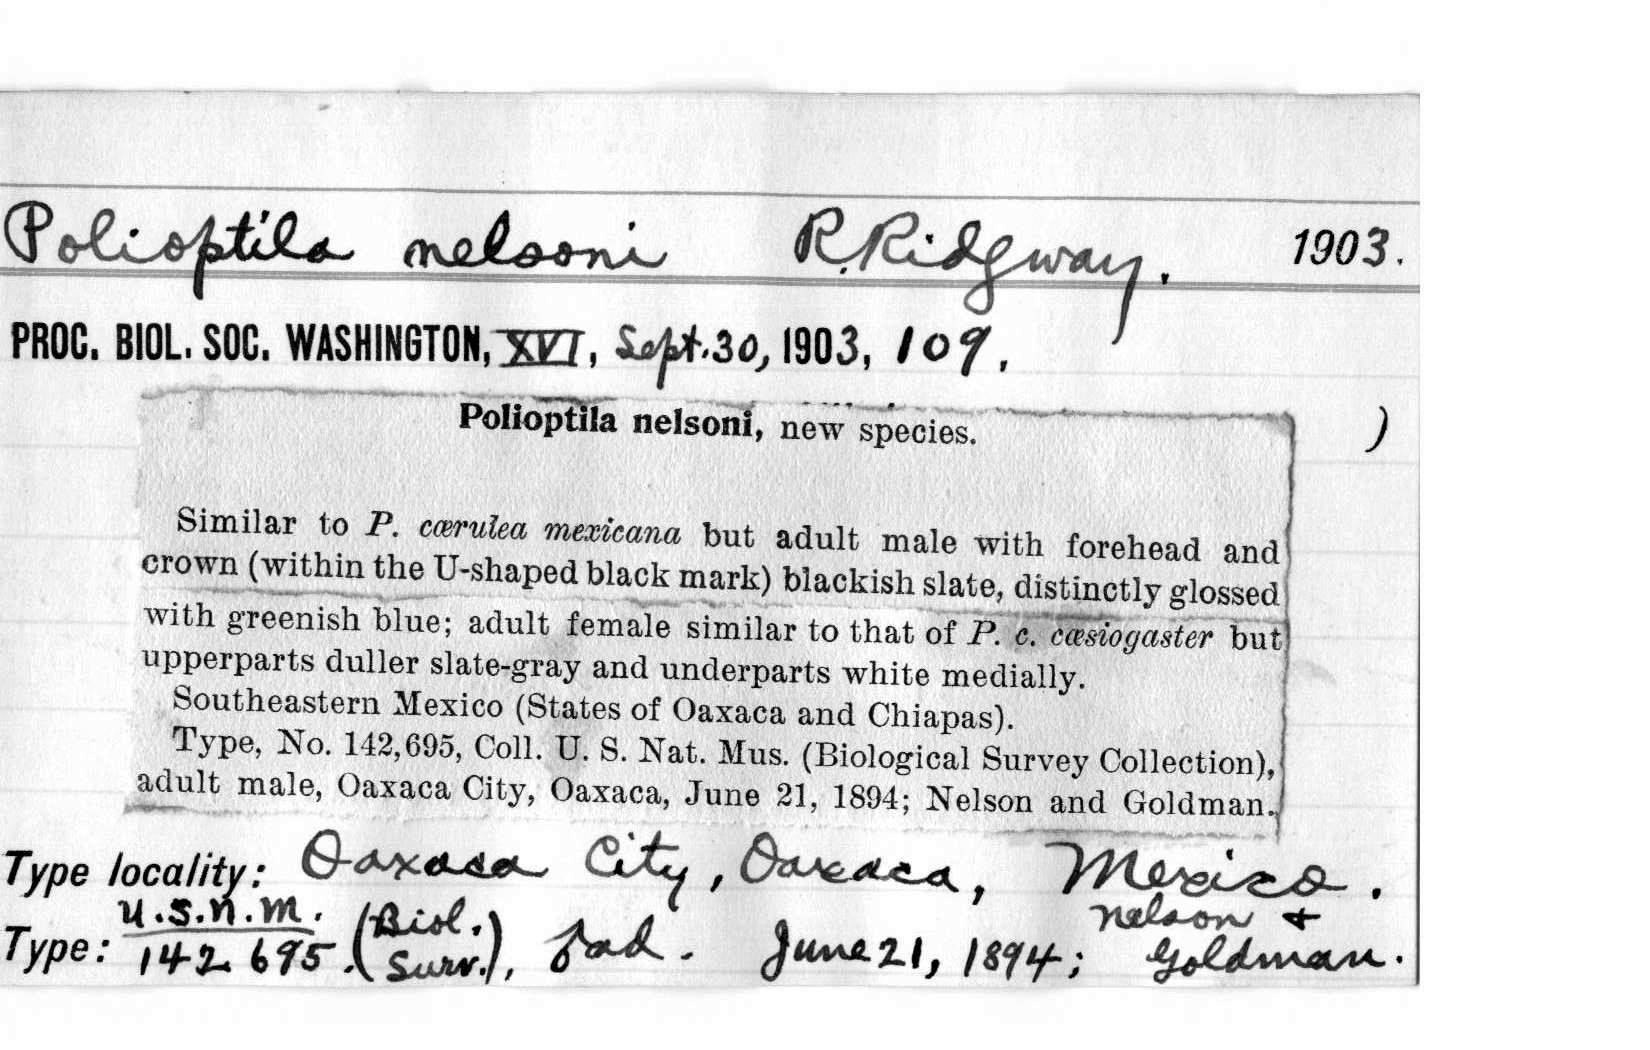 Polioptila nelsoni R. Ridgway. 1903.
PROC. BIOL. SOC. WASHINGTON, XVI, Sept. 30, 1903, 109.
)
Polioptila nelsoni, new species.
Similar to P. cærulea mexicana but adult male with forehead and
crown (within the U-shaped black mark) blackish slate, distinctly glossed
with greenish blue; adult female similar to that of P. c. cæsiogaster but
upperparts duller slate-gray and underparts white medially.
Southeastern Mexico (States of Oaxaca and Chiapas).
Type, No. 142,695, Coll. U. S. Nat. Mus. (Biological Survey Collection),
adult male, Oaxaca City, Oaxaca, June 21, 1894; Nelson and Goldman.
Type locality: Oaxaca City, Oaxaca, Mexico.
Type: U.S.N.M. 142 695. (Biol. Surv.), ad. June 21, 1894; Nelson + Goldman.